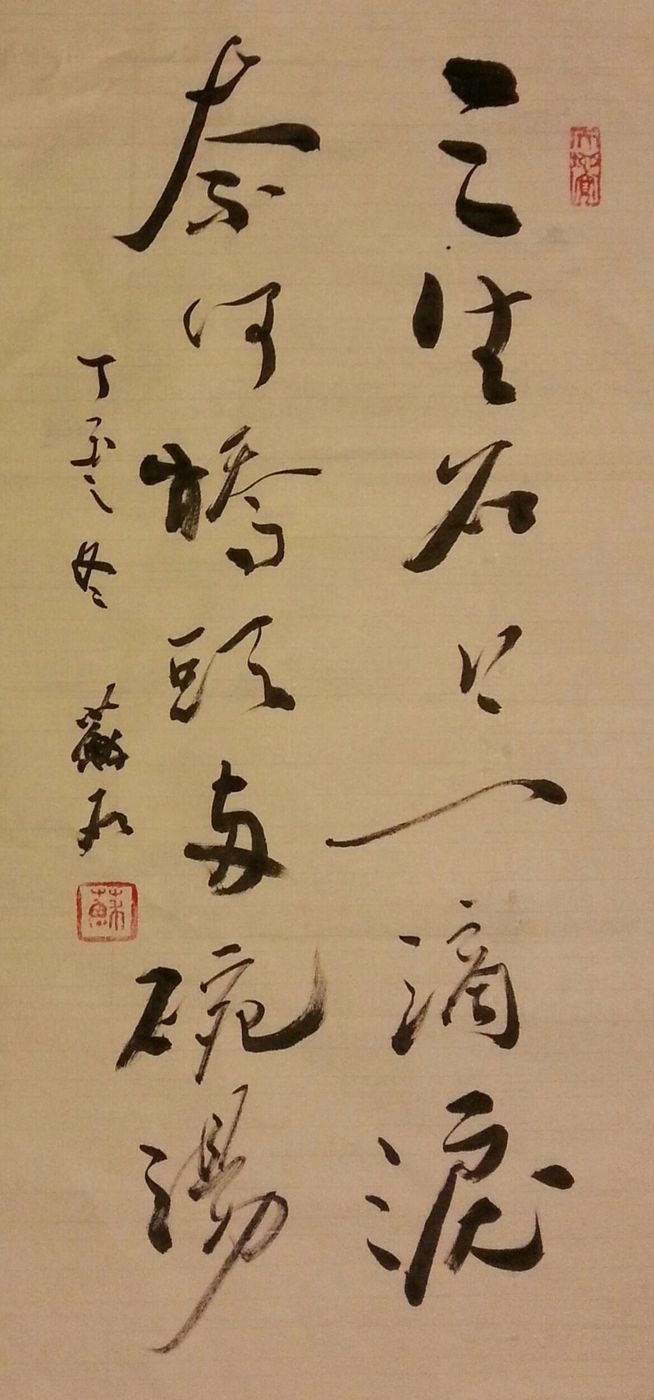 三生石上一滴淚
奈何橋頭兩碗湯
丁 冬 蘇
蘇